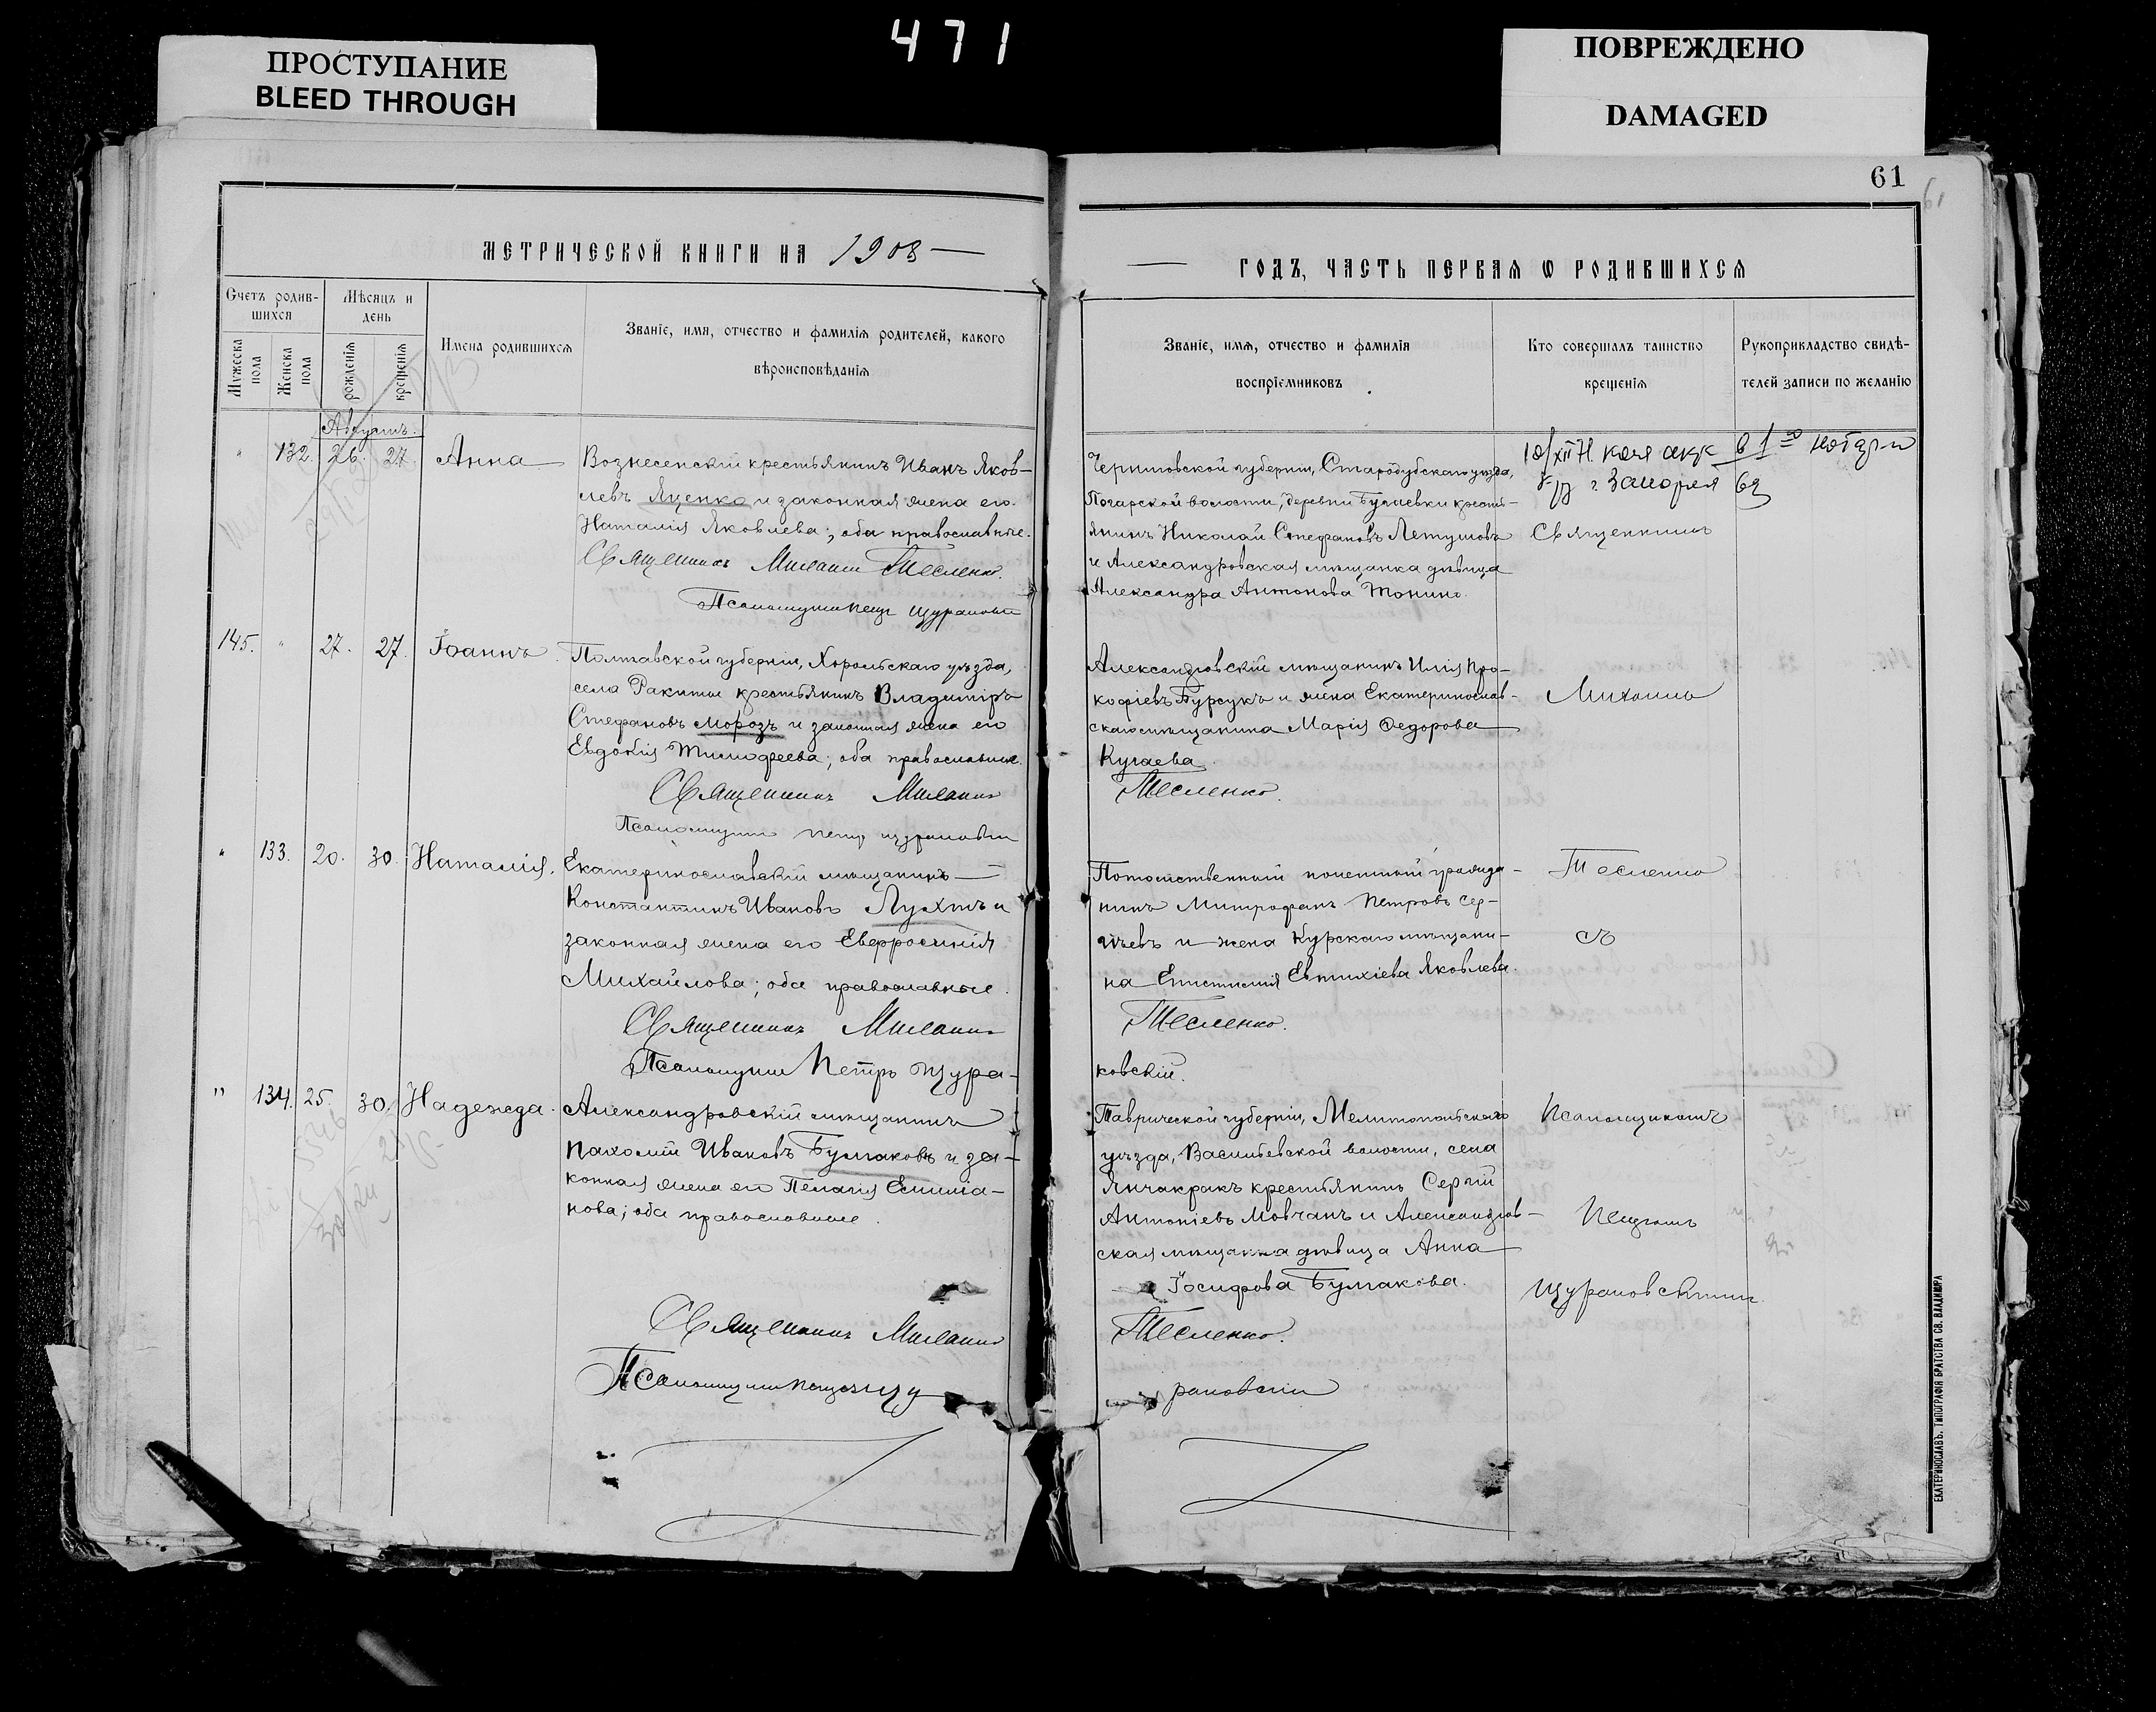 471
ПРОСТУПАНИЕ
BLEED THROUGH
ПОВРЕЖДЕНО
DAMAGED
МЕТРИЧЕСКОЙ КНИГИ НА 1908
Счетъ родив-
шихся
Мѣсяцъ и
день
Мужеска пола
Женска пола
рожденія
крещенія
Имена родившихся
Званіе, имя, отчество и фамилія родителей, какого
вѣроисповѣданія
Августъ.
" 132. 26. 27. Анна
Вознесенскій крестьянинъ Иванъ Яков-
левъ Яценко и законная жена его
Наталія Яковлева; оба православные.
Священникъ Михаилъ Тесленко.
Псаломщикъ Петръ Щурановскій
145. " 27. 27. Іоаннъ.
Полтавской губерніи, Хорольскаго уѣзда,
села Ракиты крестьянинъ Владиміръ
Стефановъ Морозъ и законная жена его
Евдокія Тимофеева; оба православные.
Священникъ Михаилъ
Псаломщикъ Петръ Щурановскій
" 133. 20. 30. Наталія.
Екатеринославскій мѣщанинъ
Константинъ Ивановъ Лухтъ и
законная жена его Евфросинія
Михайлова; оба православные.
Священникъ Михаилъ
Псаломщикъ Петръ Щура-
" 134. 25. 30. Надежда.
Александровскій мѣщанинъ
Пахомій Ивановъ Булгаковъ и за-
конная жена его Пелагія Емилiа-
нова; оба православные.
Священникъ Михаилъ
Псаломщикъ Петръ Щу
61
ГОДЪ, ЧАСТЬ ПЕРВАЯ Ѡ РОДИВШИХСЯ
Званіе, имя, отчество и фамилія
воспріемниковъ
Кто совершалъ таинство
крещенія
Рукоприкладство свидѣ-
телей записи по желанію
Черниговской губерніи, Стародубскаго уѣзда,
Погарской волости, деревни Бугаевки кресть-
янинъ Николай Стефановъ Летуновъ
и Александровская мѣщанка дѣвица
Александра Антонова Тонино.
Священникъ
Александровскій мѣщанинъ Илія Про-
кофіевъ Бурсукъ и жена Екатеринослав-
скаго мѣщанина Марія Федорова
Кугаева.
Тесленко.
Михаилъ
Потомственный почетный гражда-
нинъ Митрофанъ Петровъ Сер-
гѣевъ и жена Курскаго мѣщани-
на Епистимія Евтихіева Яковлева.
Тесленко.
ковскій.
Тесленко
съ
Таврической губерніи, Мелитопольскаго
уѣзда, Васильевской волости, села
Янчакракъ крестьянинъ Сергій
Антоніевъ Мовчанъ и Александров-
ская мѣщанка дѣвица Анна
Іосифова Булгакова.
Тесленко.
рановскій
Псаломщикомъ
Петромъ
Щурановскимъ.
ЕКАТЕРИНОСЛАВЪ. ТИПОГРАФІЯ БРАТСТВА СВ. ВЛАДИМІРА